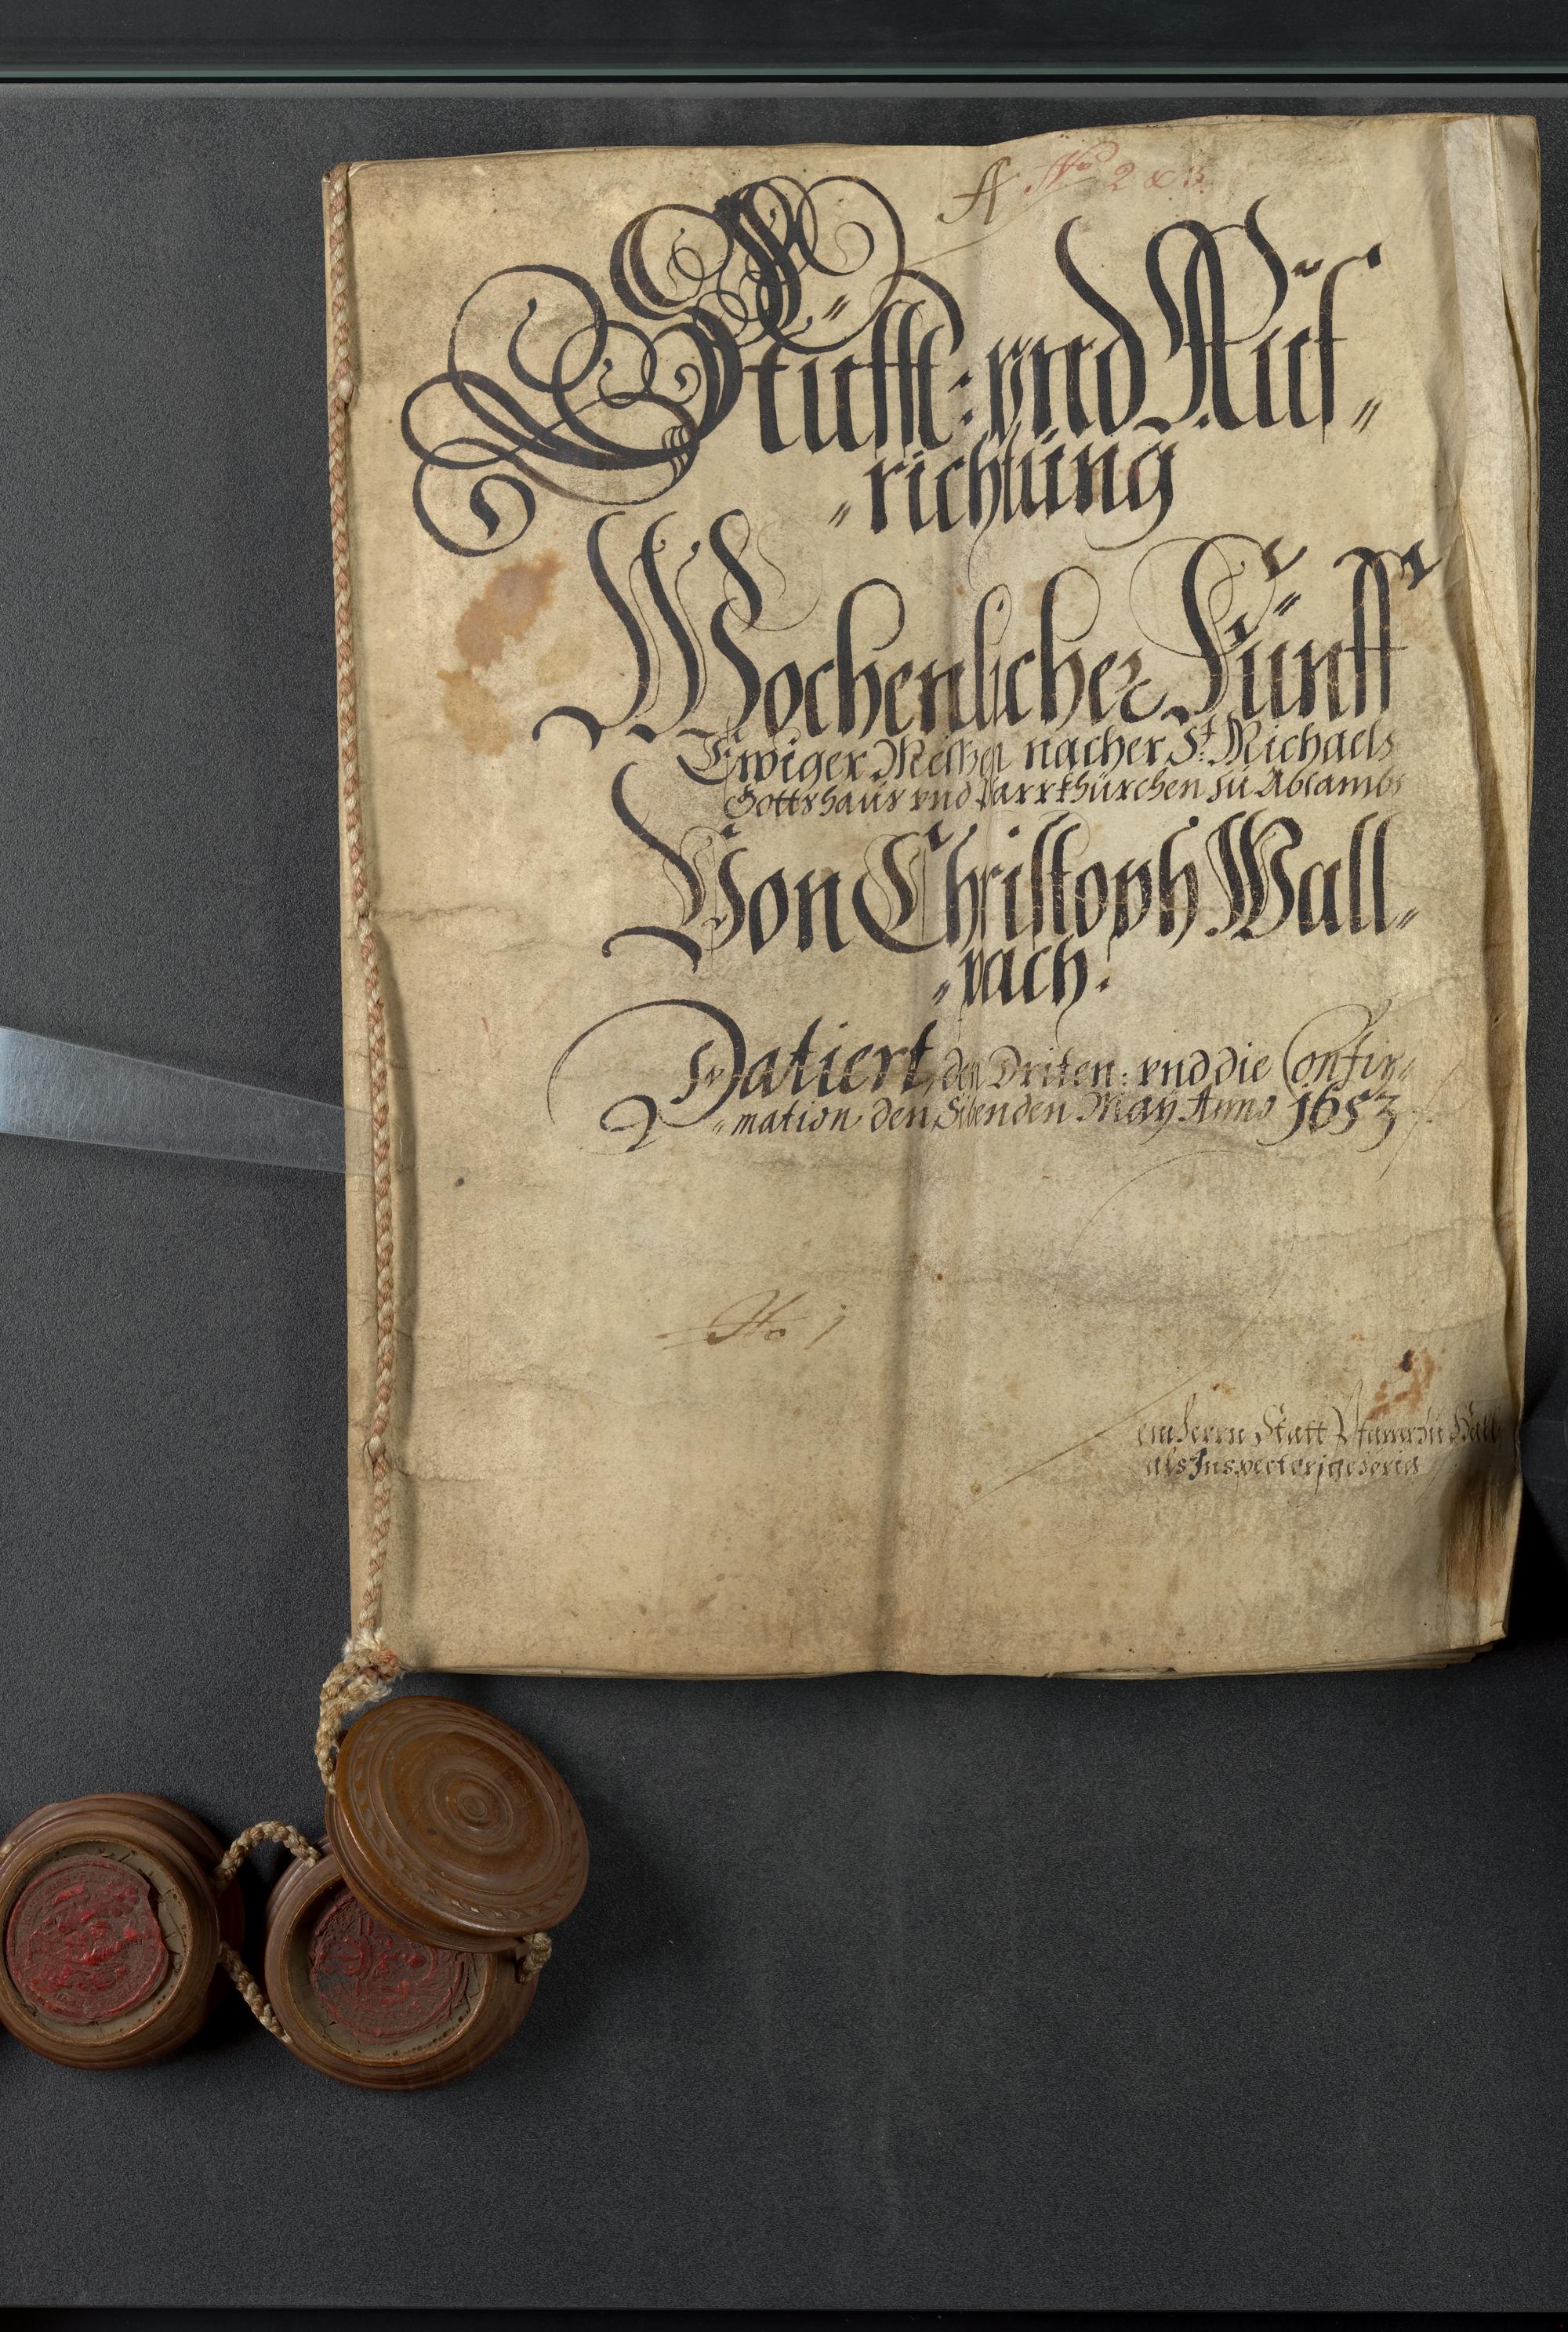 A No 2
Stüfft: vnd Auf„
„richtüng
Wochenlicher Fünff
Ewiger Messen nacher St: Michaels
Gottshaus vnd Pfarrkhürchen zu Absambs
Von Christoph Wall„
„pach.
Datiert, den Driten: vnd die Confir„
„mation den Sibenden May Anno 1653
No 1
em Herrn Statt Pfarrer zu Hall
als Inspectori gehörig